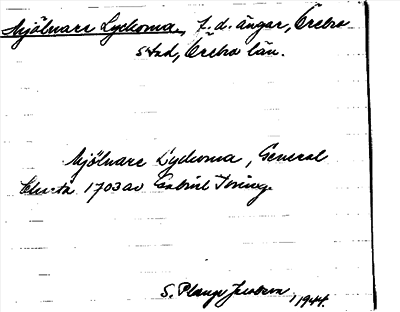 Mjölnare Lyckorna, f. d. ängar, Örebro
stad, Örebro län.
Mjölnare Lyckorna, General
Charta 1703 av Gabriel Tering.
S. Plange Jacobson, 1944.